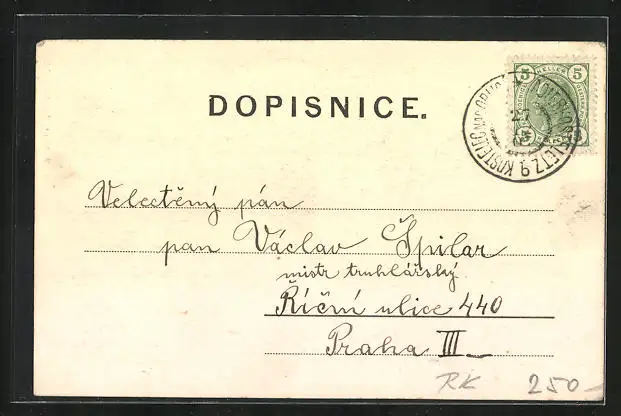 DOPISNICE.
5 HELLER 5
KOSTELEC NAD ORLICÍ
27
9
Velectěný pán
pan Václav Špilar
mistr truhlářský
Říční ulice 440
Praha III
RK 250-